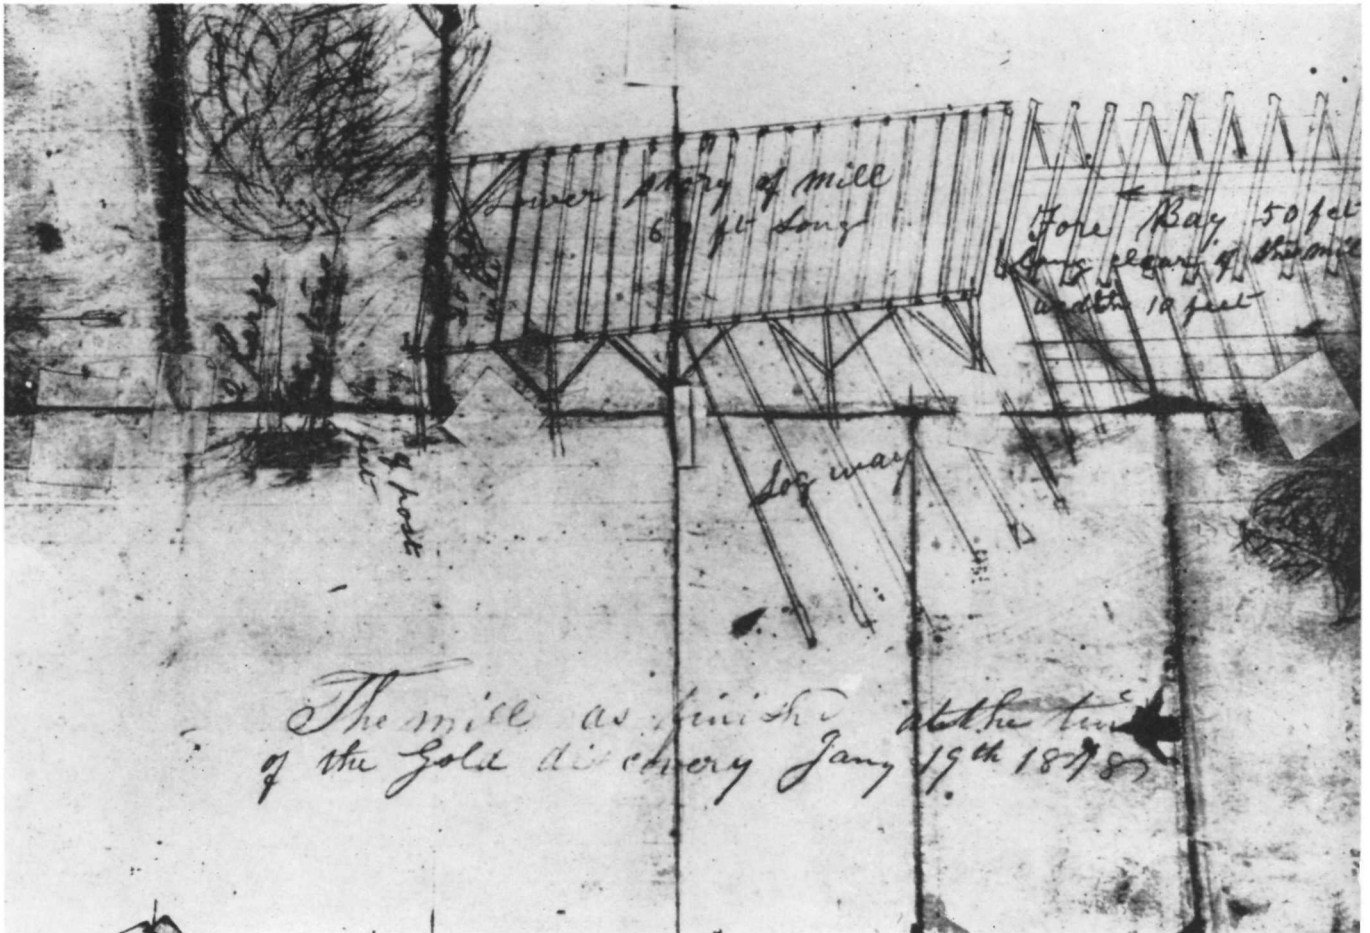 Lower story of mill
6 ft Long
Fore Bay 50 feet
Long clear of the mill
width 10 feet
2 large
of post
feet
Log way
The mill as finish at the time
of the Gold discovery Jany 19th 1848